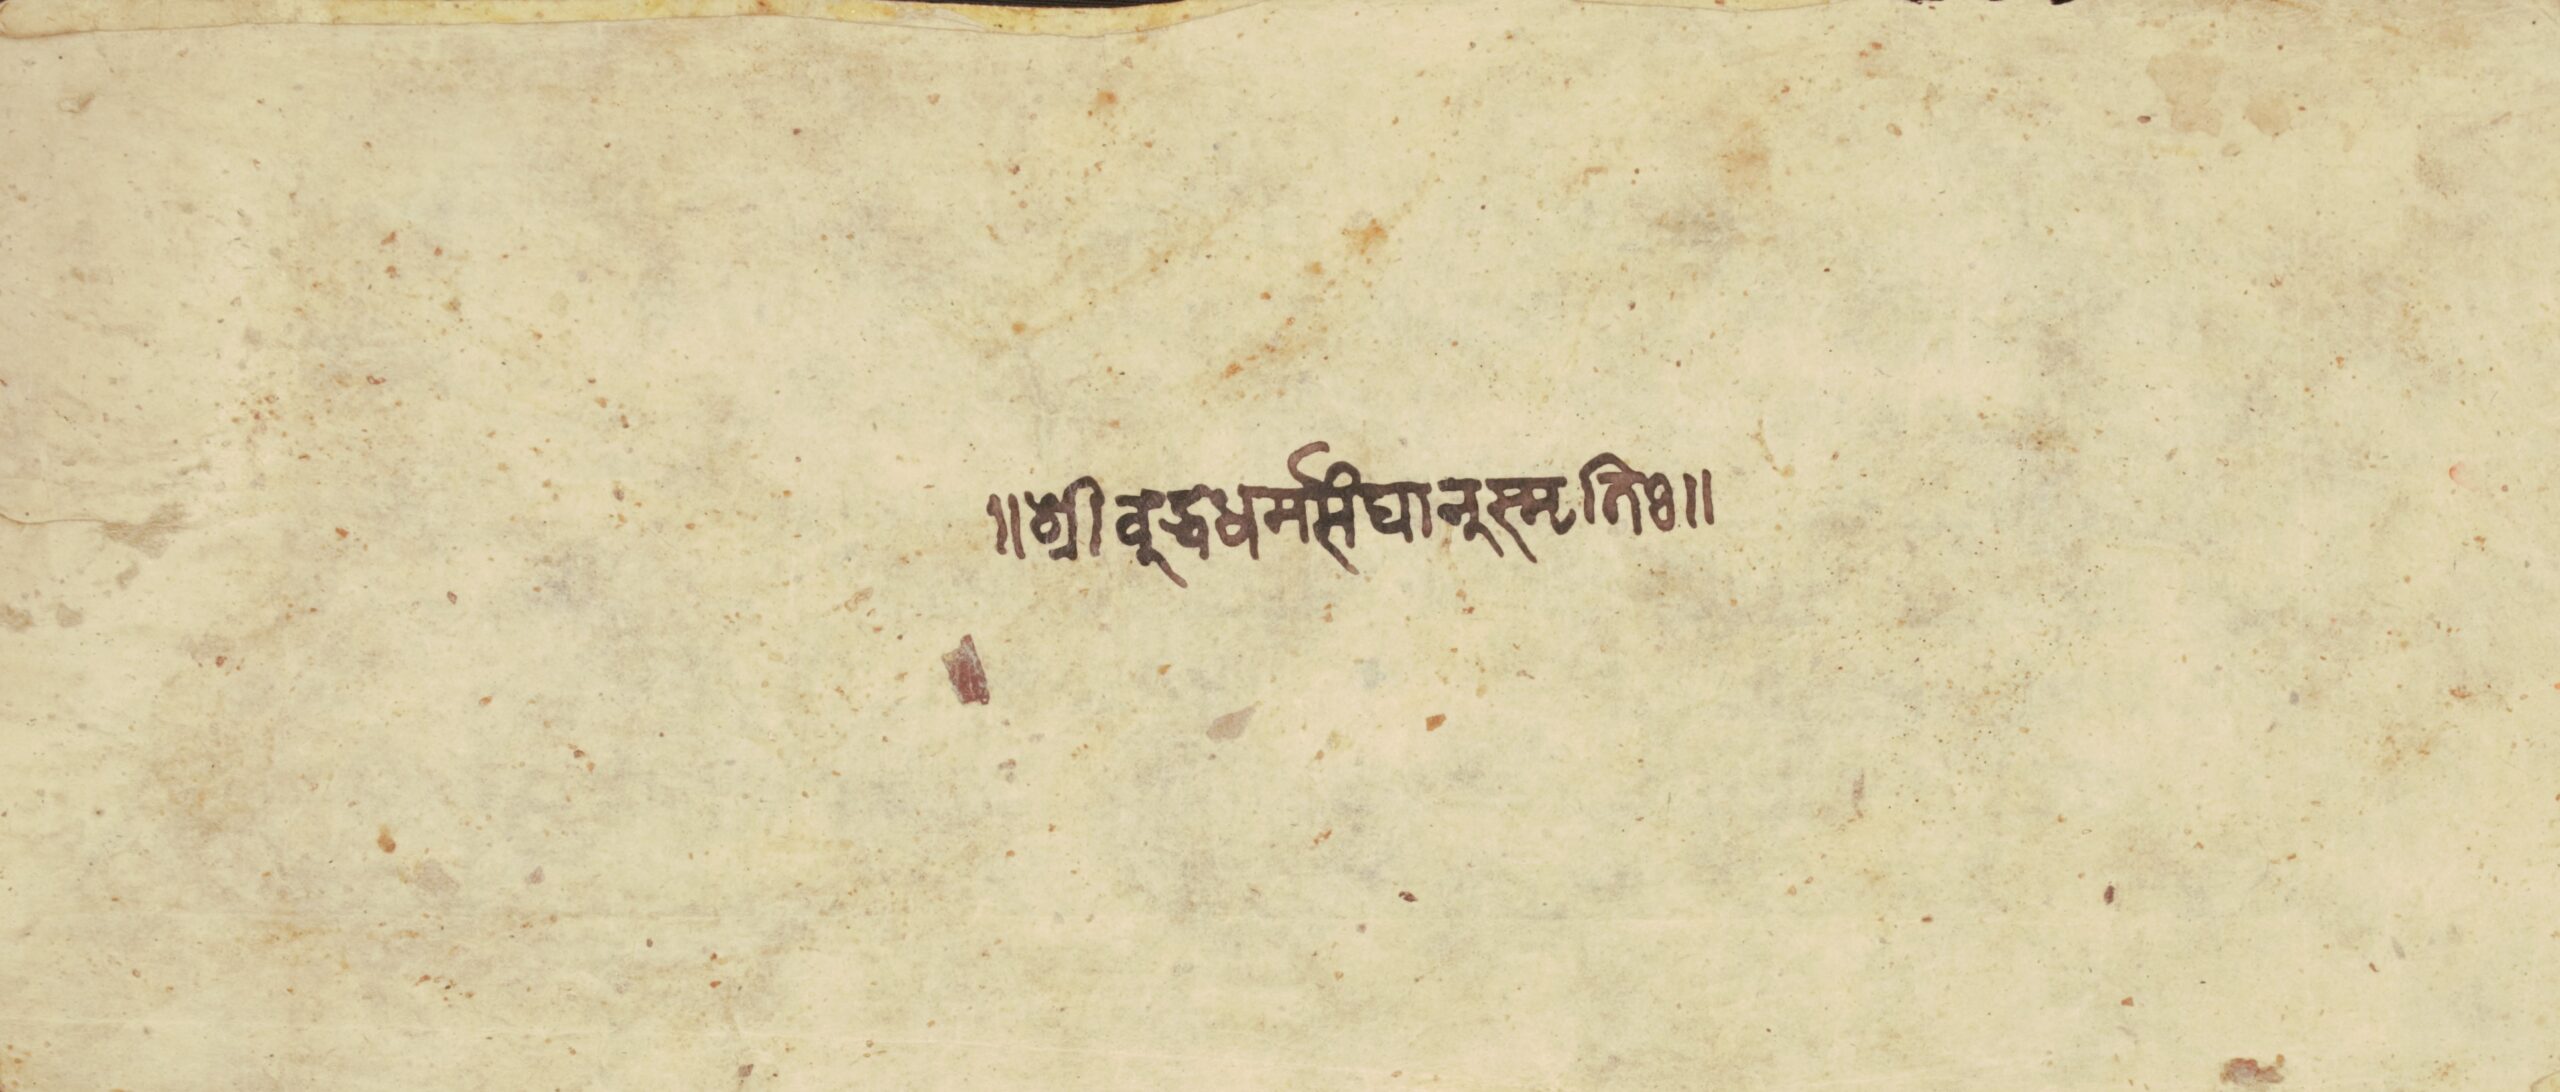 ॥श्रीवूद्धधर्मसंघानूस्मृतिः॥